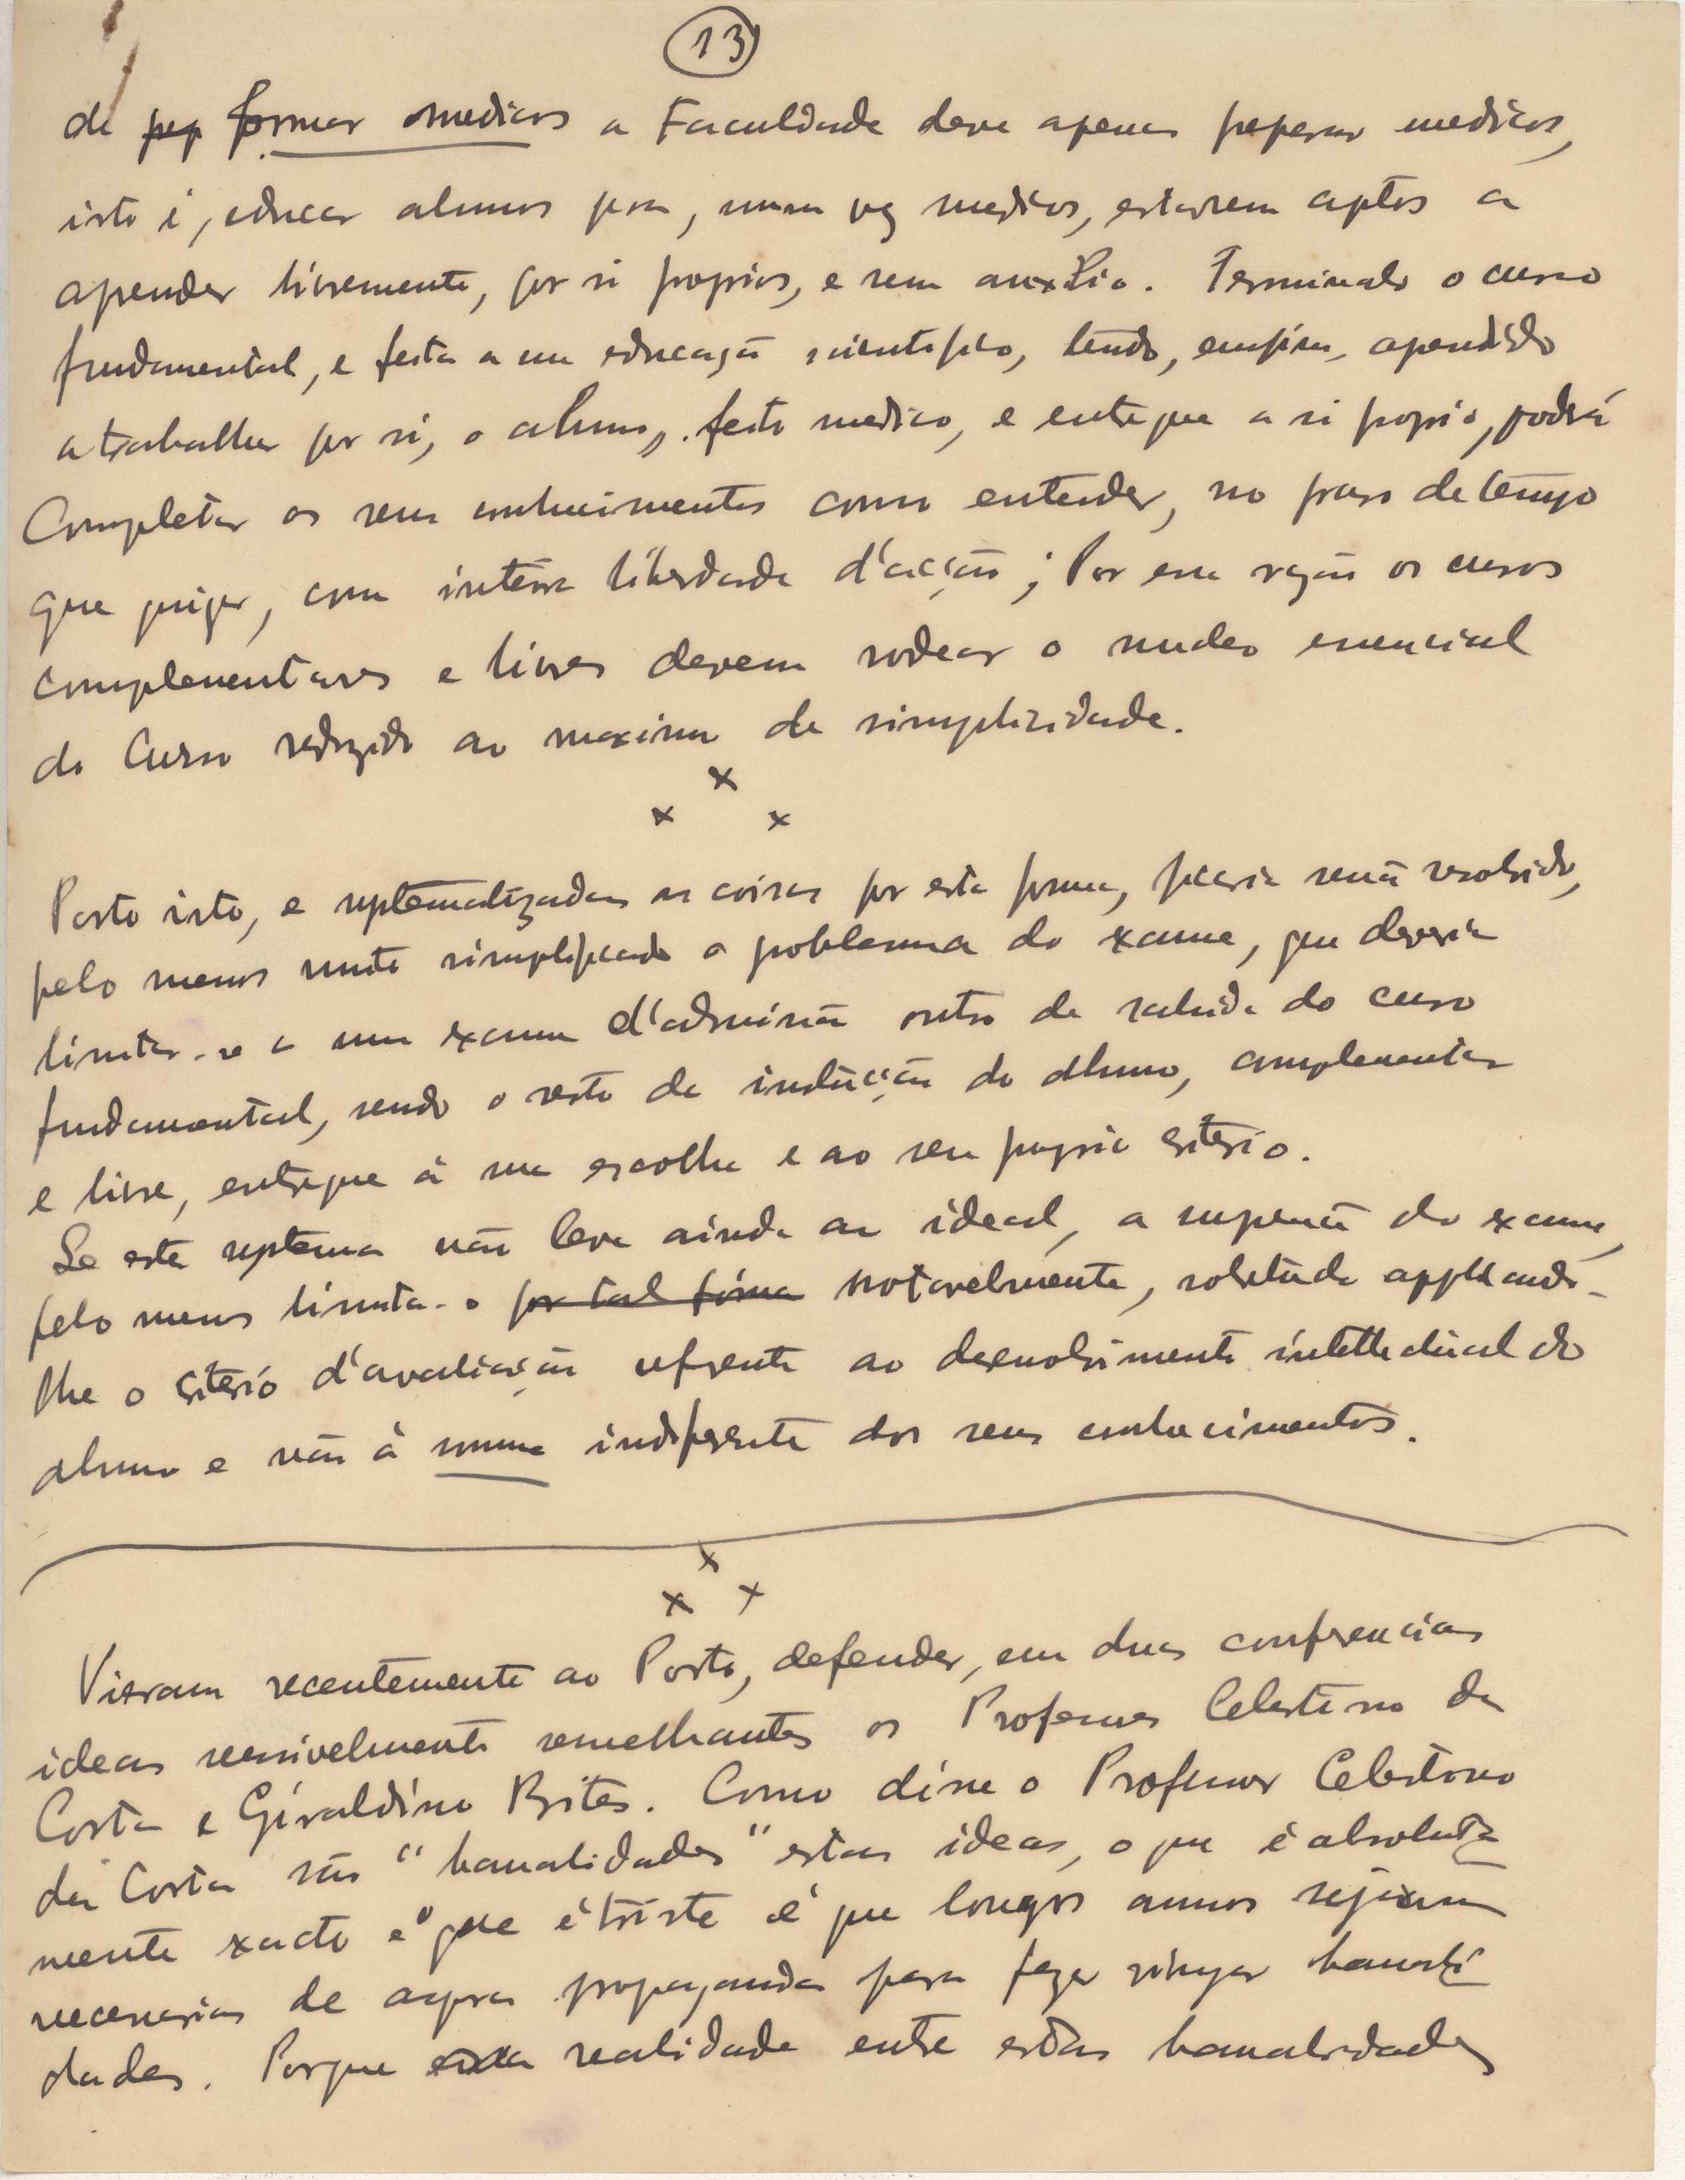 13
de pep formar medicos a Faculdade deve apenas preparar medicos,
isto é, educar alumnos para, uma vez medicos, estarem aptos a
aprender livremente, por si proprios, e sem auxilio. Terminado o curso
fundamental, e feita a sua educação scientifica, tendo, emfim, aprendido
a trabalhar por si, o alumno, feito medico, e entregue a si proprio, poderá
Completar os seus conhecimentos como entender, no praso de tempo
que quizer, com inteira liberdade d'acção; Por essa razão os cursos
complementares e livres devem rodear o nucleo essencial
do Curso reduzido ao maximo de simplicidade.
x
x x
Posto isto, e systematizadas as coisas por esta forma, ficaria senão resolvido,
pelo menos muito simplificado o problema do exame, que deveria
limitar-se a um exame d'admissão outro de sahida do curso
fundamental, sendo o resto da instrucção do alumno, complementar
e livre, entregue á sua escolha e ao seu proprio criterio.
Se este systema não leva ainda ao ideal, a supressão do exame,
pelo menos limita-o por tal forma notavelmente, sobretudo applicando-
lhe o criterio d'avaliação referente ao desenvolvimento intellectual do
alumno e não á somma indiferente dos seus conhecimentos.
x
x x
Vieram recentemente ao Porto, defender, em duas conferencias
ideas sensivelmente semelhantes os Professores Celestino da
Costa e Giraldino Brites. Como disse o Professor Celestino
da Costa são "banalidades" estas ideas, o que é absoluta
mente exacto e o que é triste é que longos annos sejam
necessarios de aspra propaganda para fazer vingar banali
dades. Porque realidade entre estas banalidades